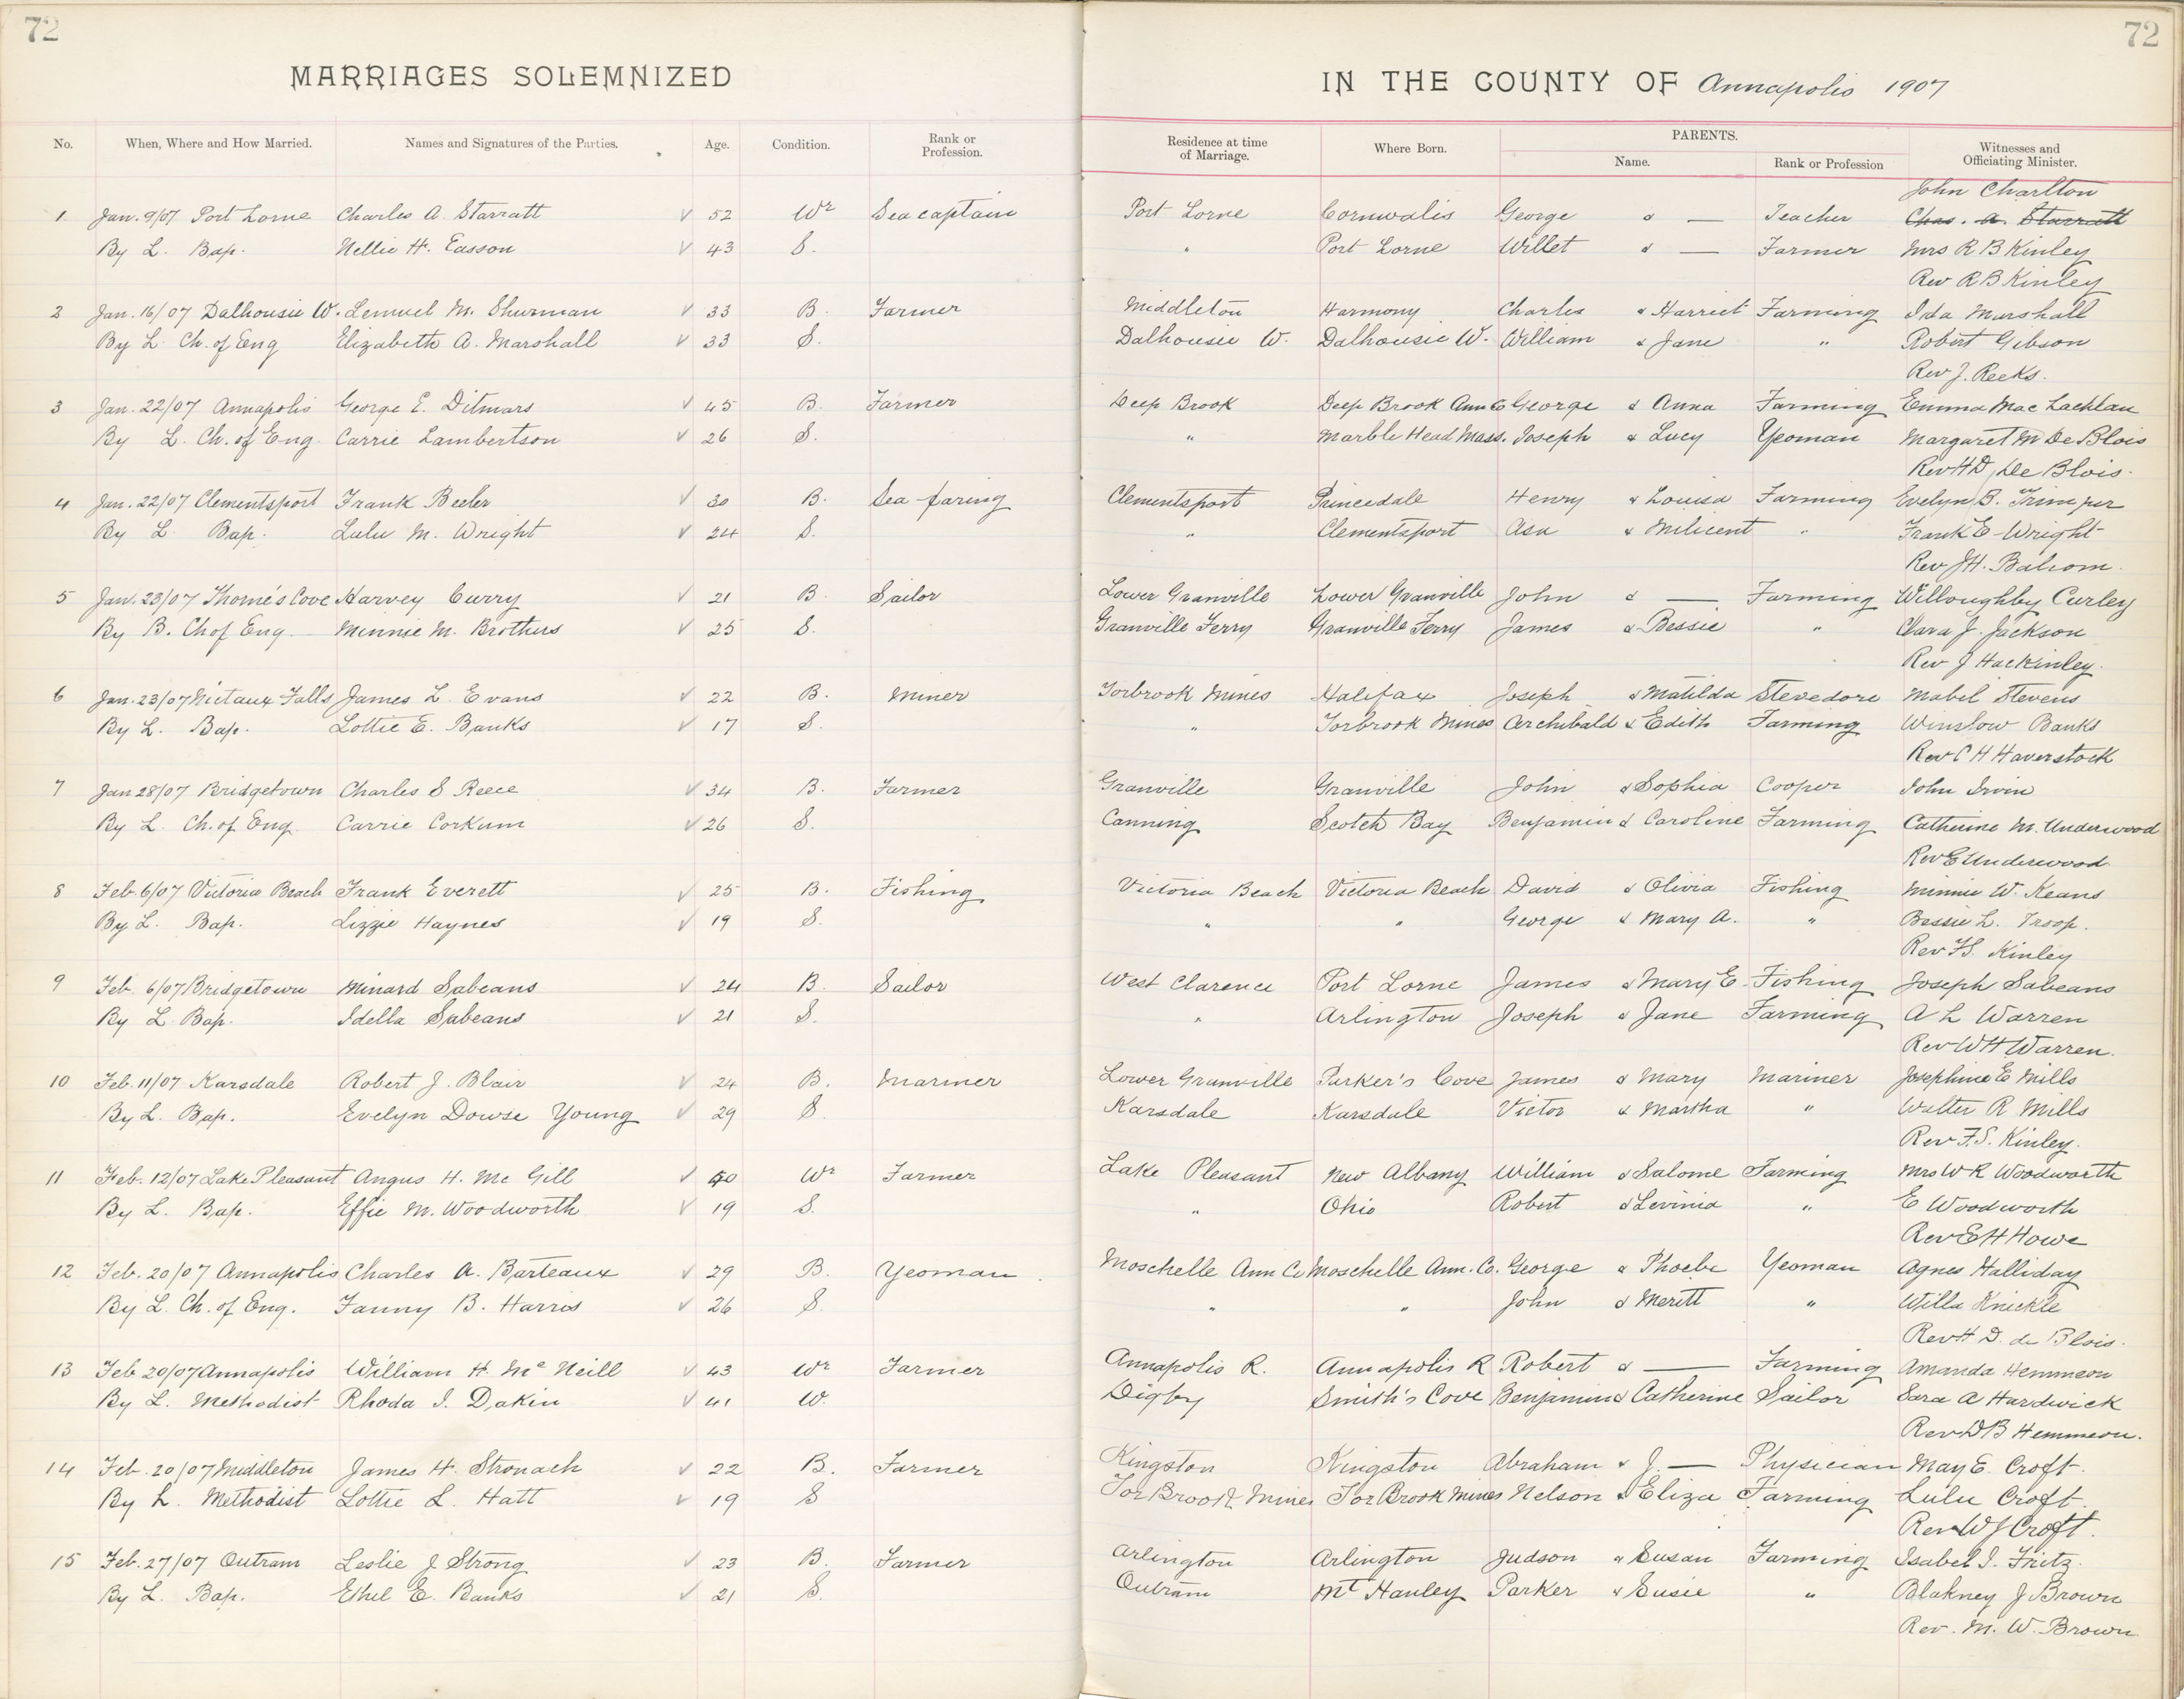 72
72
MARRIAGES SOLEMNIZED
IN THE COUNTY OF Annapolis 1907
No. When, Where and How Married. Names and Signatures of the Parties. Age. Condition. Rank or Profession. Residence at time of Marriage. Where Born. PARENTS. Name. Rank or Profession Witnesses and Officiating Minister.
John Charlton
1 Jan. 9/07 Port Lorne Charles A. Starratt √ 52 Wr Sea captain Port Lorne Cornwalis George & — Teacher Chas. A. Starratt
By L. Bap. Nellie H. Easson √ 43 S. " Port Lorne Willet & — Farmer Mrs R B Kinley
Rev R B Kinley
2 Jan. 16/07 Dalhousie W. Lemuel M. Shurman √ 33 B. Farmer Middleton Harmony Charles & Harriet Farming Ida Marshall
By L. Ch. of Eng Elizabeth A. Marshall √ 33 S. Dalhousie W. Dalhousie W. William & Jane " Robert Gibson
Rev J. Reeks.
3 Jan. 22/07 Annapolis George E. Ditmars √ 45 B. Farmer Deep Brook Deep Brook Ann Co George & Anna Farming Emma Mac Lachlan
By L. Ch. of Eng. Carrie Lambertson √ 26 S. " Marble Head Mass. Joseph & Lucy Yeoman Margaret M De Blois
Rev H D, De Blois.
4 Jan. 22/07 Clementsport Frank Beeler √ 30 B. Sea faring Clementsport Princedale Henry & Louisa Farming Evelyn B. Trimper
By L. Bap. Lulu M. Wright √ 24 S. " Clementsport Asa & Milicent " Frank E Wright
Rev J H. Balcom.
5 Jan. 23/07 Thorne's Cove Harvey Curry √ 21 B. Sailor Lower Granville Lower Granville John & — Farming Willoughby Curley
By B. Ch of Eng. Minnie M. Brothers √ 25 S. Granville Ferry Granville Ferry James & Bessie " Clara J. Jackson
Rev J Hackinley.
6 Jan. 23/07 Nictaux Falls James L. Evans √ 22 B. Miner Torbrook Mines Halifax Joseph & Matilda Stevedore Mabel Stevens
By L. Bap. Lottie E. Banks √ 17 S. " Torbrook Mines Archibald & Edith Farming Winslow Banks
Rev C H Haverstock
7 Jan 28/07 Bridgetown Charles S Reece √ 34 B. Farmer Granville Granville John & Sophia Cooper John Irvin
By L. Ch. of Eng. Carrie Corkum √ 26 S. Canning Scotch Bay Benjamin & Caroline Farming Catherine M. Underwood
Rev E Underwood
8 Feb. 6/07 Victoria Beach Frank Everett √ 25 B. Fishing Victoria Beach Victoria Beach David & Olivia Fishing Minnie W. Keans
By L. Bap. Lizzie Haynes √ 19 S. " " George & Mary A. " Bessie L. Troop.
Rev F S. Kinley
9 Feb. 6/07 Bridgetown Minard Sabeans √ 24 B. Sailor West Clarence Port Lorne James & Mary E. Fishing Joseph Sabeans
By L Bap. Idella Sabeans √ 21 S. " Arlington Joseph & Jane Farming A L Warren
Rev W H Warren.
10 Feb. 11/07 Karsdale Robert J. Blair √ 24 B. Mariner Lower Granville Parker's Cove James & Mary Mariner Josephine E Mills
By L. Bap. Evelyn Dowse Young √ 29 S Karsdale Karsdale Victor & Martha " Walter R Mills
Rev F. S. Kinley.
11 Feb. 12/07 Lake Pleasant Angus H. Mc Gill √ 50 Wr Farmer Lake Pleasant New Albany William & Salome Farming Mrs W R Woodworth
By L. Bap. Effie M. Woodworth √ 19 S. " Ohio Robert & Levinia " E Woodworth
Rev E H Howe
12 Feb. 20/07 Annapolis Charles A. Barteaux √ 29 B. Yeoman Moschelle Ann Co Moschelle Ann. Co. George & Phoebe Yeoman Agnes Halliday
By L. Ch. of Eng. Fanny B. Harris √ 26 S. " " John & Meritt " Willa Knickle
Rev H D. de Blois.
13 Feb 20/07 Annapolis William H. Mc Neill √ 43 Wr Farmer Annapolis R. Annapolis R Robert & — Farming Amanda Hemmeon
By L. Methodist Rhoda I. Dakin √ 41 W. Digby Smith's Cove Benjamin & Catherine Sailor Sara A Hardwick
Rev D B Hemmeon.
14 Feb. 20/07 Middleton James H. Stronach √ 22 B. Farmer Kingston Kingston Abraham & J. — Physician May E. Croft.
By L. Methodist Lottie L. Hatt √ 19 S TorBrook Mines TorBrook Mines Nelson & Eliza Farming Lulu Croft.
Rev W J Croft.
15 Feb. 27/07 Outram Leslie J Strong √ 23 B. Farmer Arlington Arlington Judson & Susan Farming Isabel I. Fritz.
By L. Bap. Ethel E. Banks √ 21 S. Outram Mt Hanley Parker & Susie " Blakney J Brown
Rev. M. W. Brown